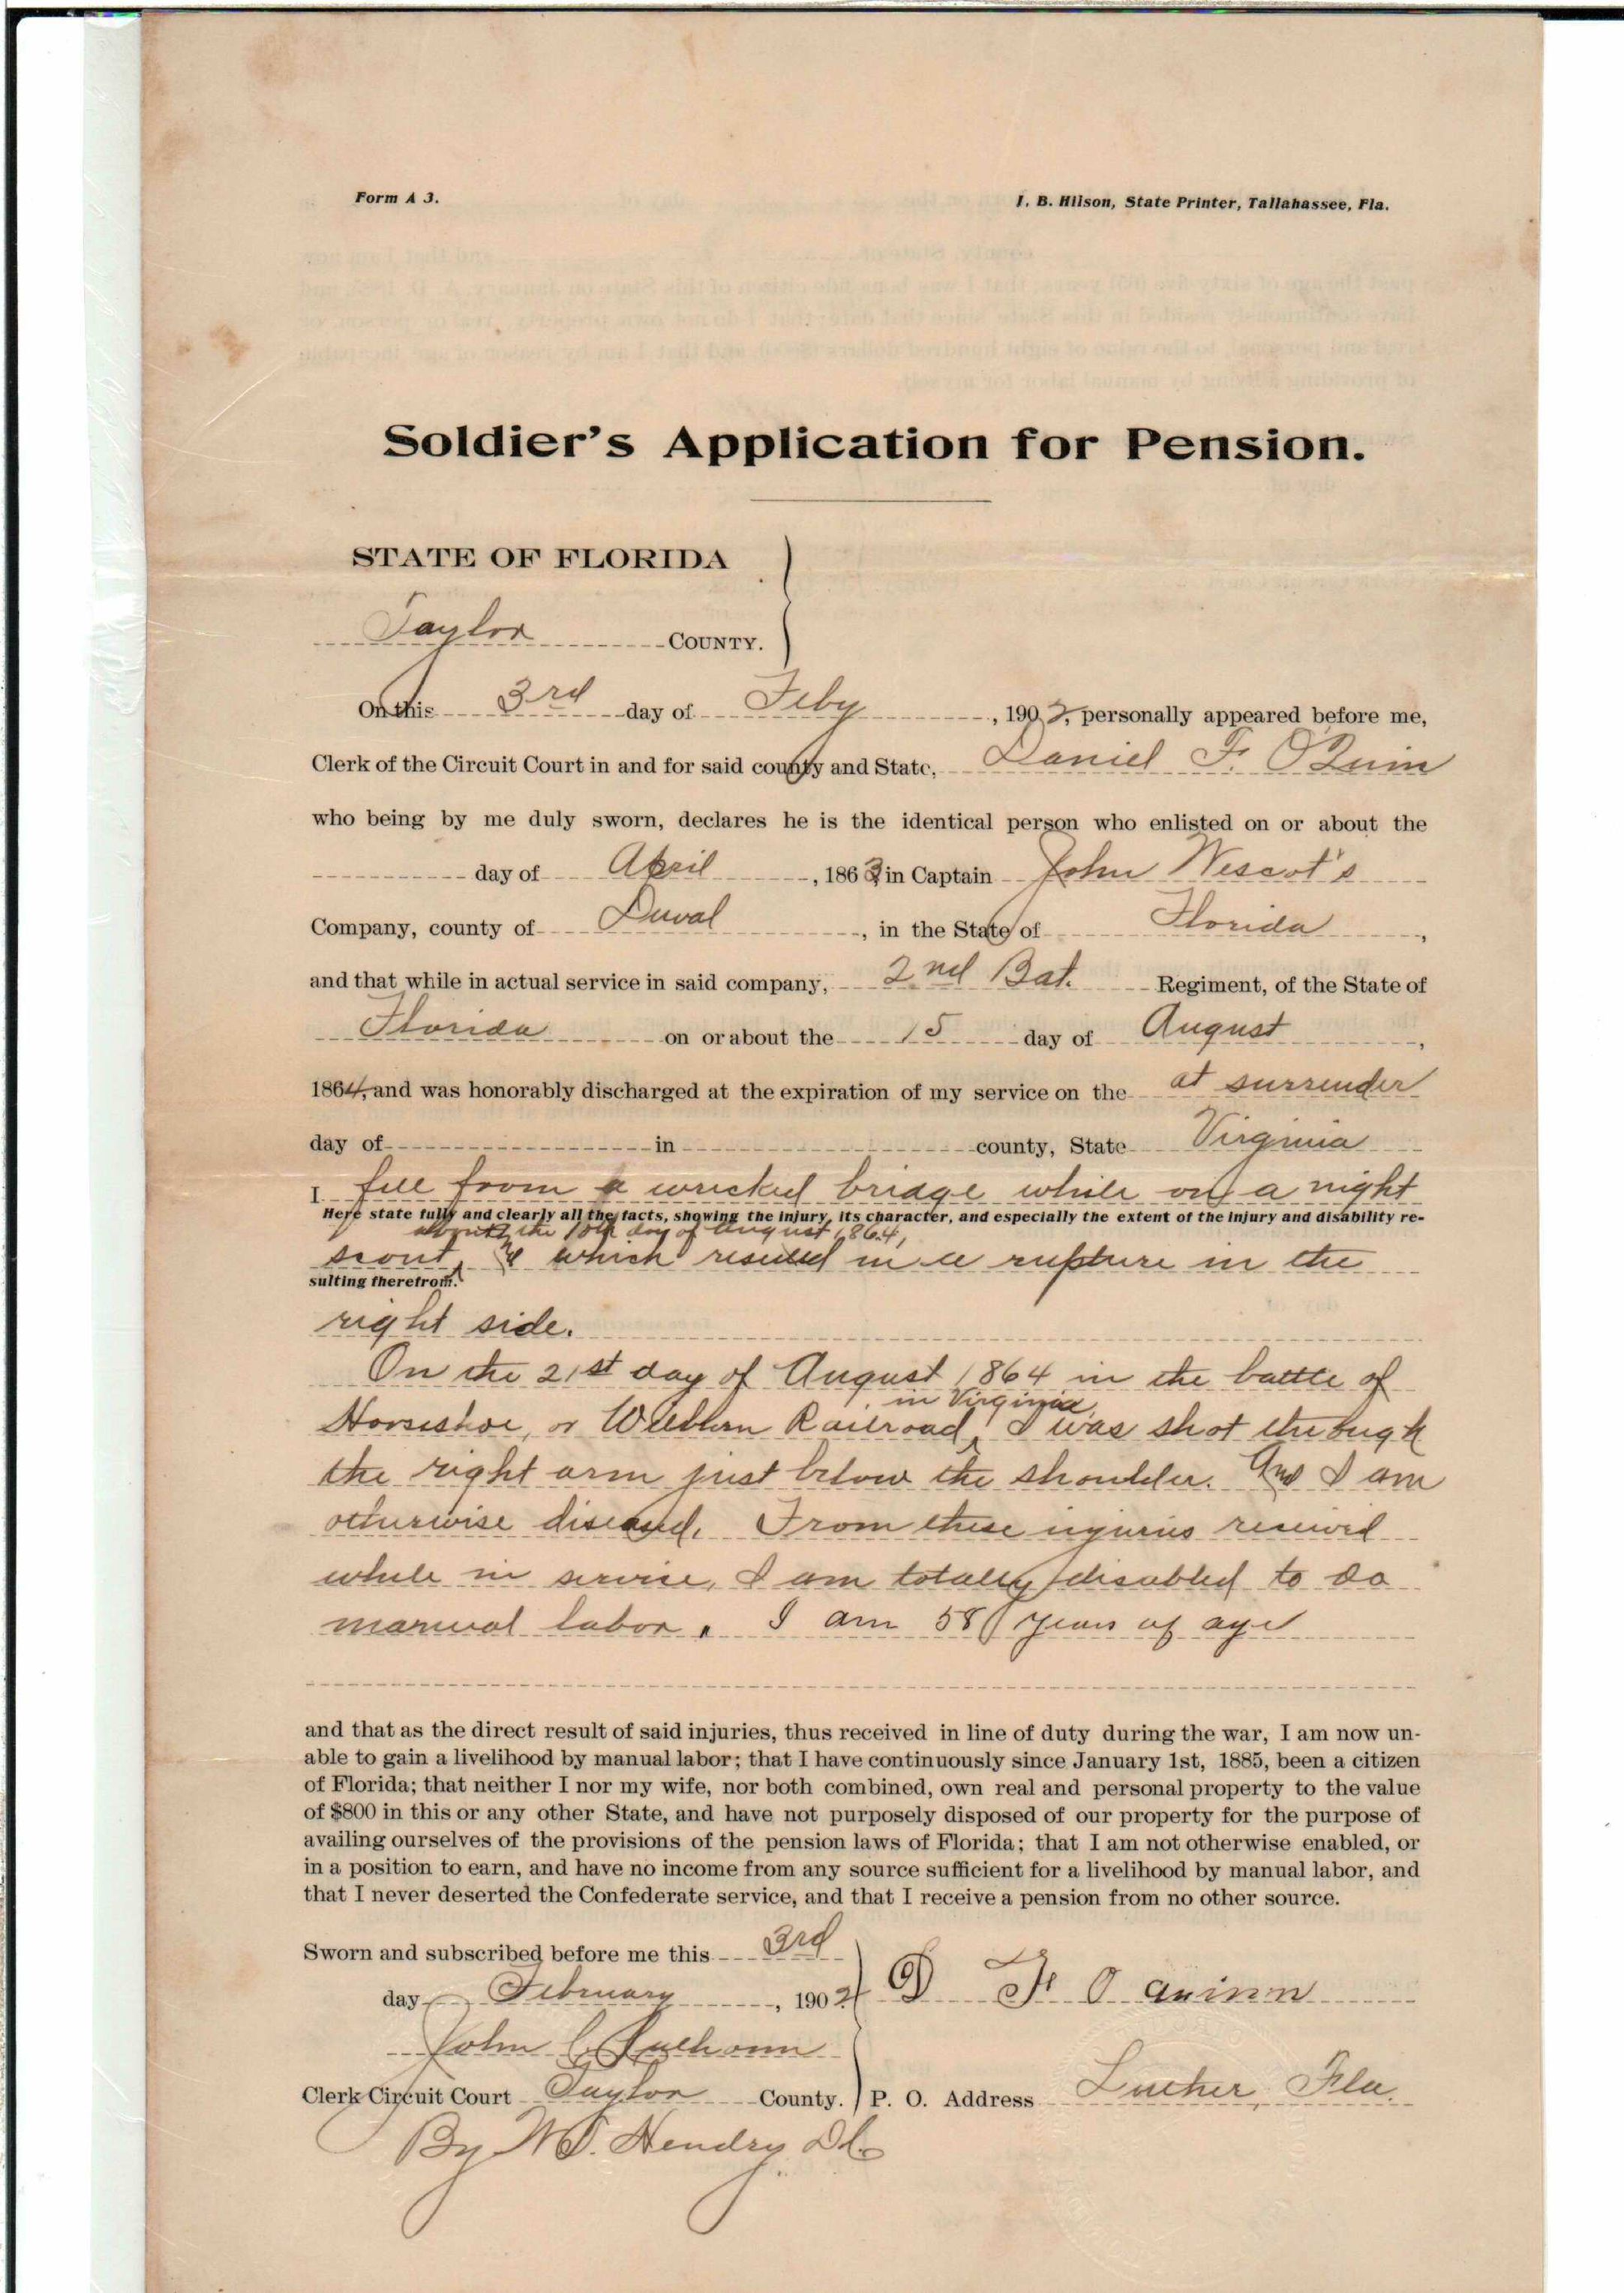 Form A 3.
I. B. Hilson, State Printer, Tallahassee, Fla.
Soldier's Application for Pension.
STATE OF FLORIDA
Taylor COUNTY.
On this 3rd day of Feby, 1902, personally appeared before me,
Clerk of the Circuit Court in and for said county and State, Daniel F. O'Quinn
who being by me duly sworn, declares he is the identical person who enlisted on or about the
day of April, 1863 in Captain John Wescot's
Company, county of Duval, in the State of Florida,
and that while in actual service in said company, 2nd Bat. Regiment, of the State of
Florida on or about the 15 day of August,
1864, and was honorably discharged at the expiration of my service on the at surrender
day of in county, State Virginia
I fell from a wrecked bridge while on a night
Here state fully and clearly all the facts, showing the injury, its character, and especially the extent of the injury and disability re-
about the 15th day of August 1864,
scout, which resulted in a rupture in the
sulting therefrom.
right side.
On the 21st day of August 1864 in the battle of
in Virginia,
Horseshoe, or Weldon Railroad, I was shot through
the right arm just below the shoulder. And I am
otherwise diseased. From these injuries received
while in service, I am totally disabled to do
manual labor. I am 58 years of age
and that as the direct result of said injuries, thus received in line of duty during the war, I am now un-
able to gain a livelihood by manual labor; that I have continuously since January 1st, 1885, been a citizen
of Florida; that neither I nor my wife, nor both combined, own real and personal property to the value
of $800 in this or any other State, and have not purposely disposed of our property for the purpose of
availing ourselves of the provisions of the pension laws of Florida; that I am not otherwise enabled, or
in a position to earn, and have no income from any source sufficient for a livelihood by manual labor, and
that I never deserted the Confederate service, and that I receive a pension from no other source.
Sworn and subscribed before me this 3rd
day February, 1902 D F O quinn
John C Calhoun
Clerk Circuit Court Taylor County. P. O. Address Luther, Fla.
By W. T. Hendry D.C.